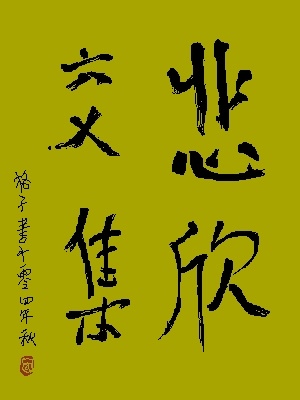 悲欣
交集
格子书于零四年秋